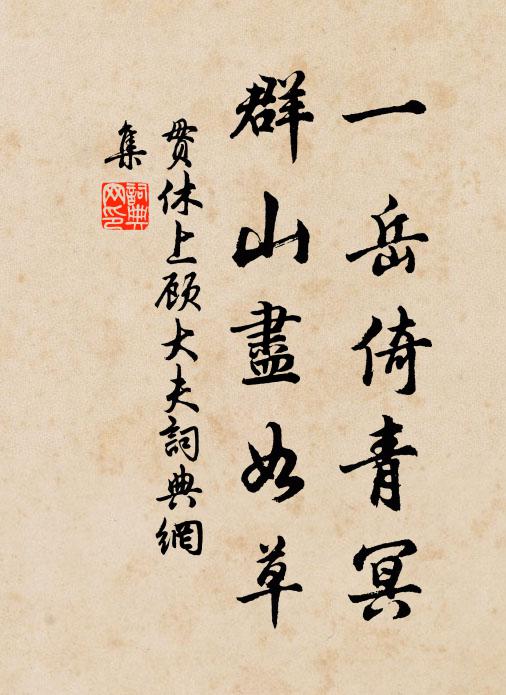 一岳倚青冥
群山盡如草
貫休上顾大夫詞典網
集
詞典网印